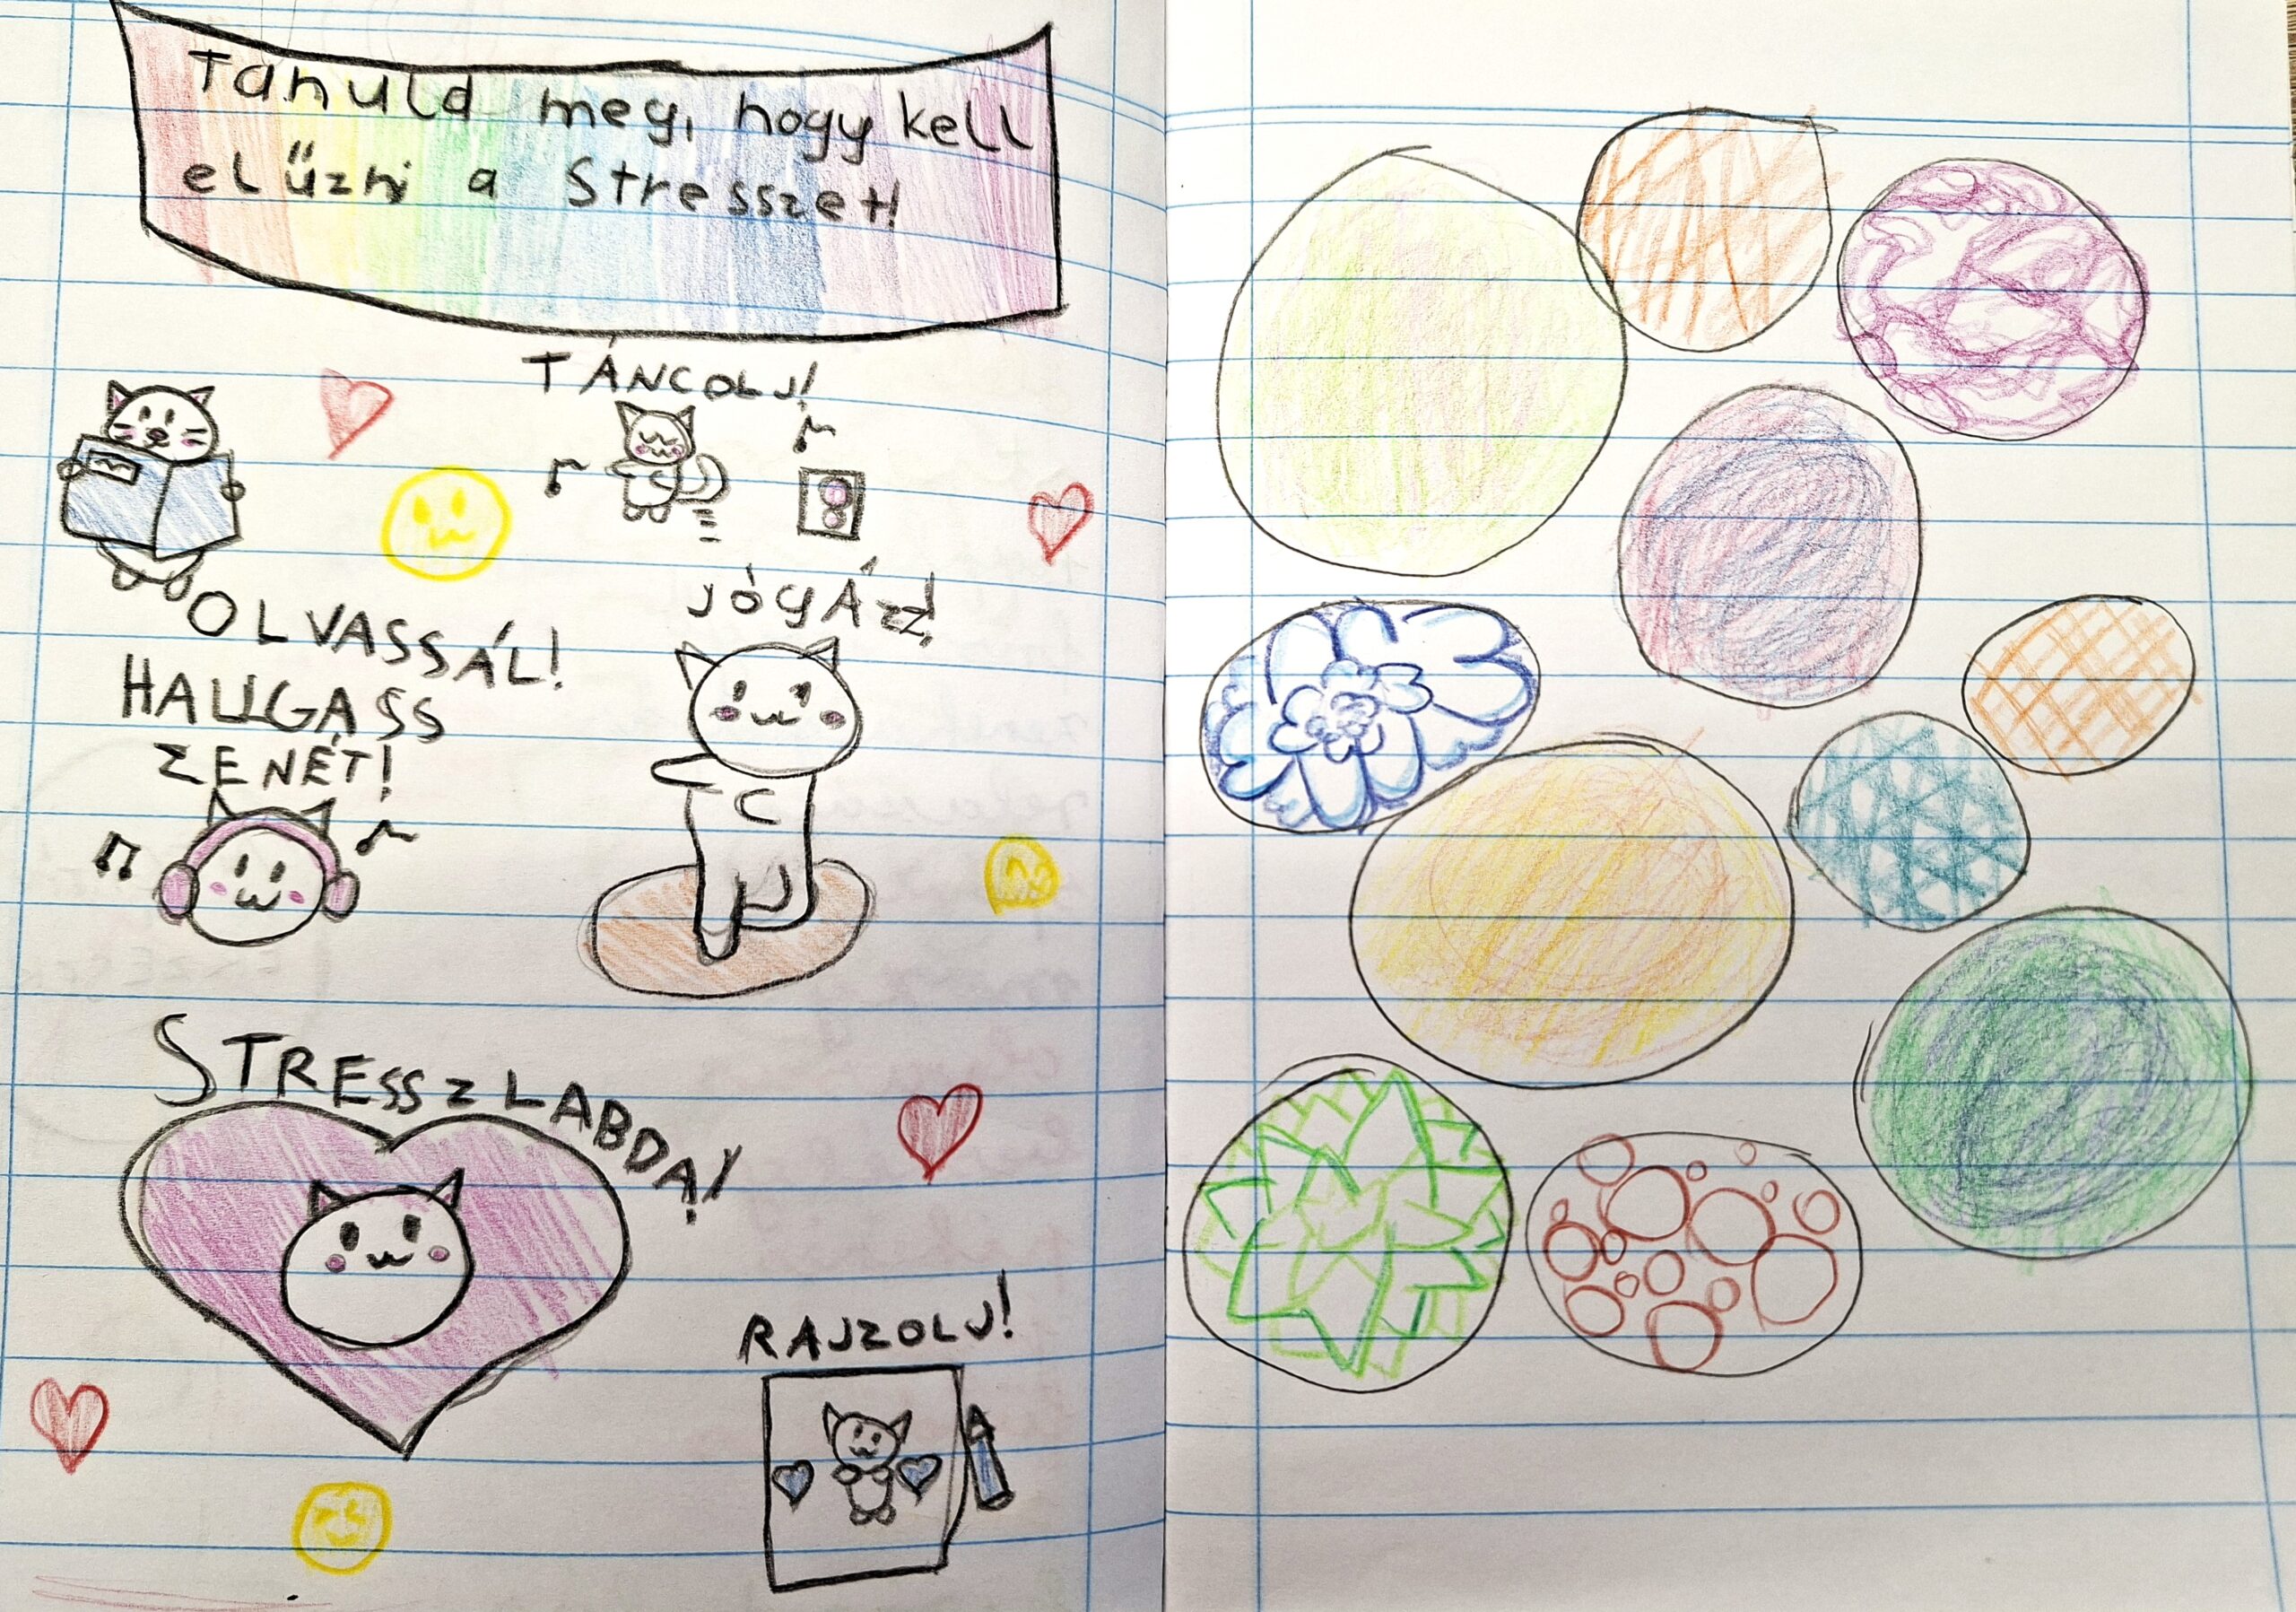 Tanuld meg, hogy kell
elűzni a Stresszet!
TÁNCOLJ!
OLVASSÁL!
JÓGÁZZ!
HALLGASS
ZENÉT!
STRESSZLABDA!
RAJZOLJ!